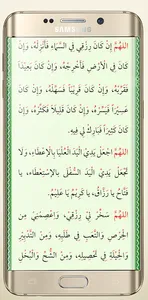 SAMSUNG
اللهُمَّ إِنْ كَانَ رِزْقِي فِي السَّمَاءِ فَأَنْزِلْهُ، وَإِنْ
كَانَ فِي الْأَرْضِ فَأَخْرِجْهُ، وَإِنْ كَانَ بَعِيدًا
فَقَرِّبْهُ، وَإِنْ كَانَ قَرِيبًا فَسَهِّلْهُ، وَإِنْ كَانَ
عَسِيرًا فَيَسِّرْهُ، وَإِنْ كَانَ قَلِيلًا فَكَثِّرْهُ، وَإِنْ
كَانَ كَثِيرًا فَبَارِكْ لِي فِيهِ.
اللهُمَّ اجْعَلْ يَدِيَ الْيَدَ الْعُلْيَا بِالْإِعْطَاءِ، وَلَا
تَجْعَلْ يَدِيَ الْيَدَ السُّفْلَى بِالِاسْتِعْطَاءِ، يَا
فَتَّاحُ يَا رَزَّاقُ، يَا كَرِيمُ يَا عَلِيمُ.
اللهُمَّ سَخِّرْ لِي رِزْقِي، وَاعْصِمْنِي مِنَ
الْحِرْصِ وَالتَّعَبِ فِي طَلَبِهِ، وَمِنَ التَّدْبِيرِ
وَالْحِيلَةِ فِي تَحْصِيلِهِ، وَمِنَ الشُّحِّ وَالْبُخْلِ